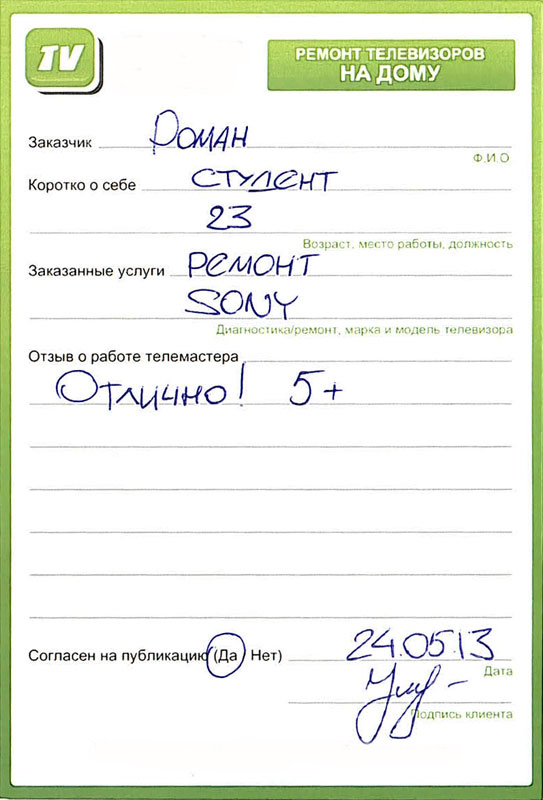 TV
РЕМОНТ ТЕЛЕВИЗОРОВ
НА ДОМУ
Заказчик Роман
Ф.И.О
Коротко о себе студент
23
Возраст, место работы, должность
Заказанные услуги Ремонт
SONY
Диагностика/ремонт, марка и модель телевизора
Отзыв о работе телемастера
Отлично! 5+
Согласен на публикацию (Да / Нет) 24.05.13
Дата
Подпись клиента